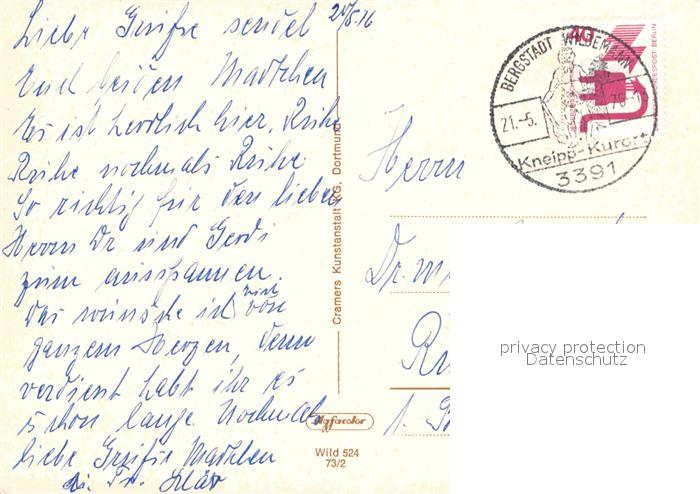 20/5.76
Liebe Grüße sendet
Euch beiden Madtchen
Es ist herrlich hier, Ruhe
Ruhe nochmals Ruhe.
So richtig für den lieben
Herrn Dr und Gerdi
zum ausspannen.
das wünsche ich euch von
ganzem Herzen, denn
verdient habt ihr es
schon lange. Nochmals
liebe Grüße Madtchen
Cramers Kunstanstalt KG, Dortmund
Agfacolor
Wild 524
73/2
BERGSTADT WILDEMANN
21.-5.
76-
Kneipp-Kurort
3391
40
DEUTSCHE BUNDESPOST BERLIN
Herrn
Dr. m
privacy protection
Datenschutz